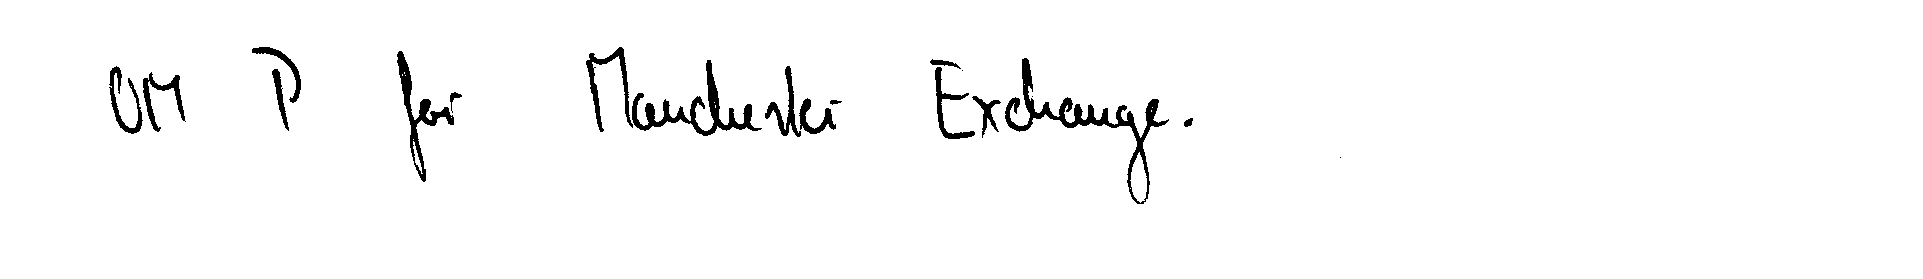 OM P for Manchester Exchange.